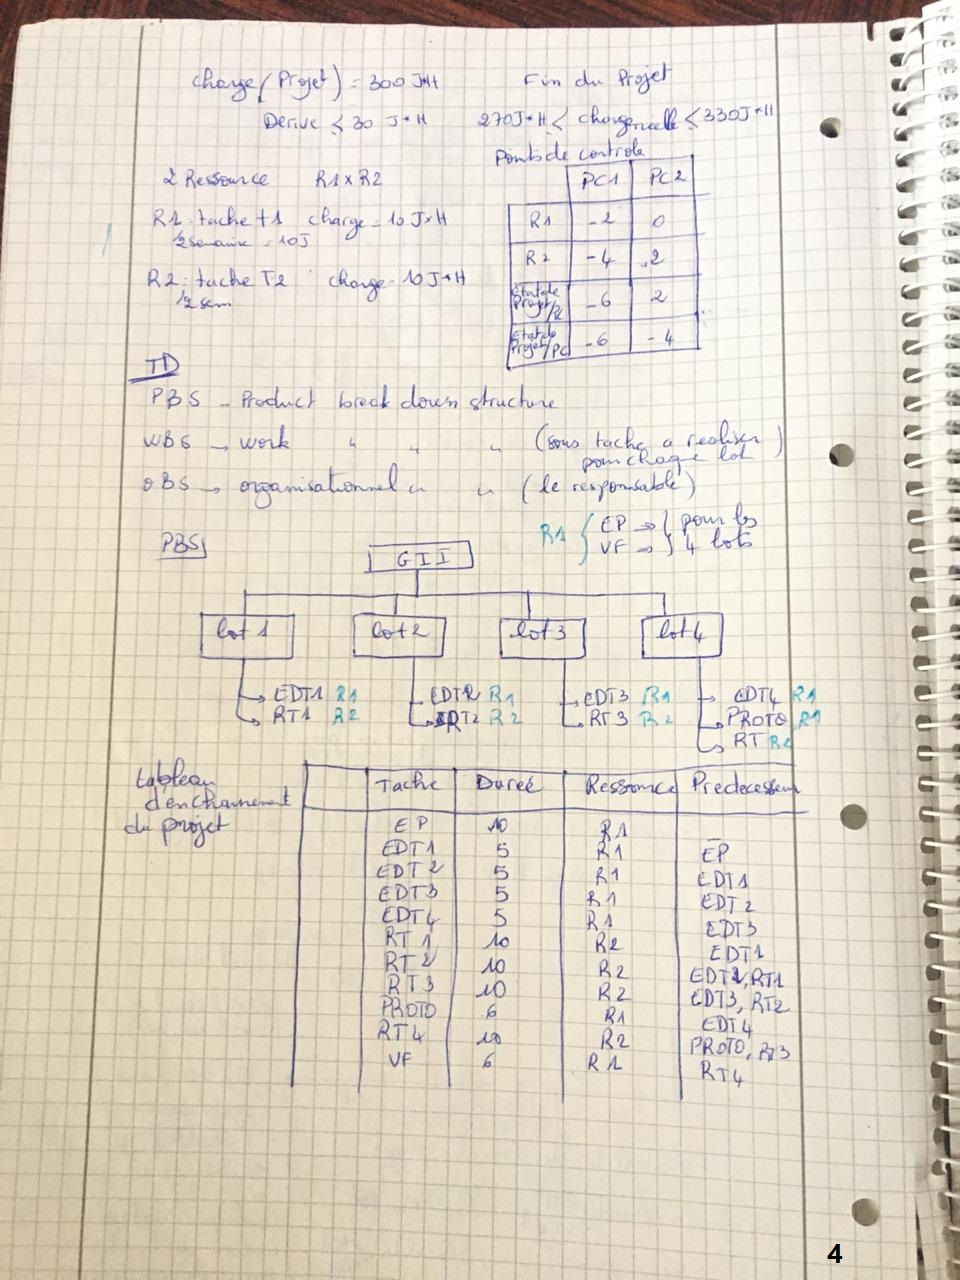 Charge (Projet) = 300 J*H
Fin du Projet
Derive ≤ 30 J*H
270 J*H < charge reelle ≤ 330 J*H
Points de controle
2 Ressource R1 x R2
PC1 PC2
R1 : tache t1 charge = 10 J*H
/2 semaine = 10J
R1 -2 0
R2 : tache T2 charge = 10 J*H
/2 sem
R2 -4 2
Etat de Projet/PC -6 2
Etat de Projet/PC -6 -4
TD
PBS - Product break down structure
WBS → work " " " (sous tache a realiser
pour chaque lot)
OBS → organisationnel " " (le responsable)
R1 { EP → } pour les
VF → } 4 lots
PBS
GII
lot 1 lot 2 lot 3 lot 4
EDT1 R1 EDT2 R1 EDT3 R1 EDT4 R1
RT1 R2 RT2 R2 RT3 R2 PROTO R1
RT R2
tableau
d'enchainement
du projet
Tache Dureé Ressource Predecesseur
EP 10 R1 _
EDT1 5 R1 EP
EDT2 5 R1 EDT1
EDT3 5 R1 EDT2
EDT4 5 R1 EDT3
RT1 10 R2 EDT1
RT2 10 R2 EDT2, RT1
RT3 10 R2 EDT3, RT2
PROTO 6 R1 EDT4
RT4 10 R2 PROTO, RT3
VF 6 R1 RT4
4